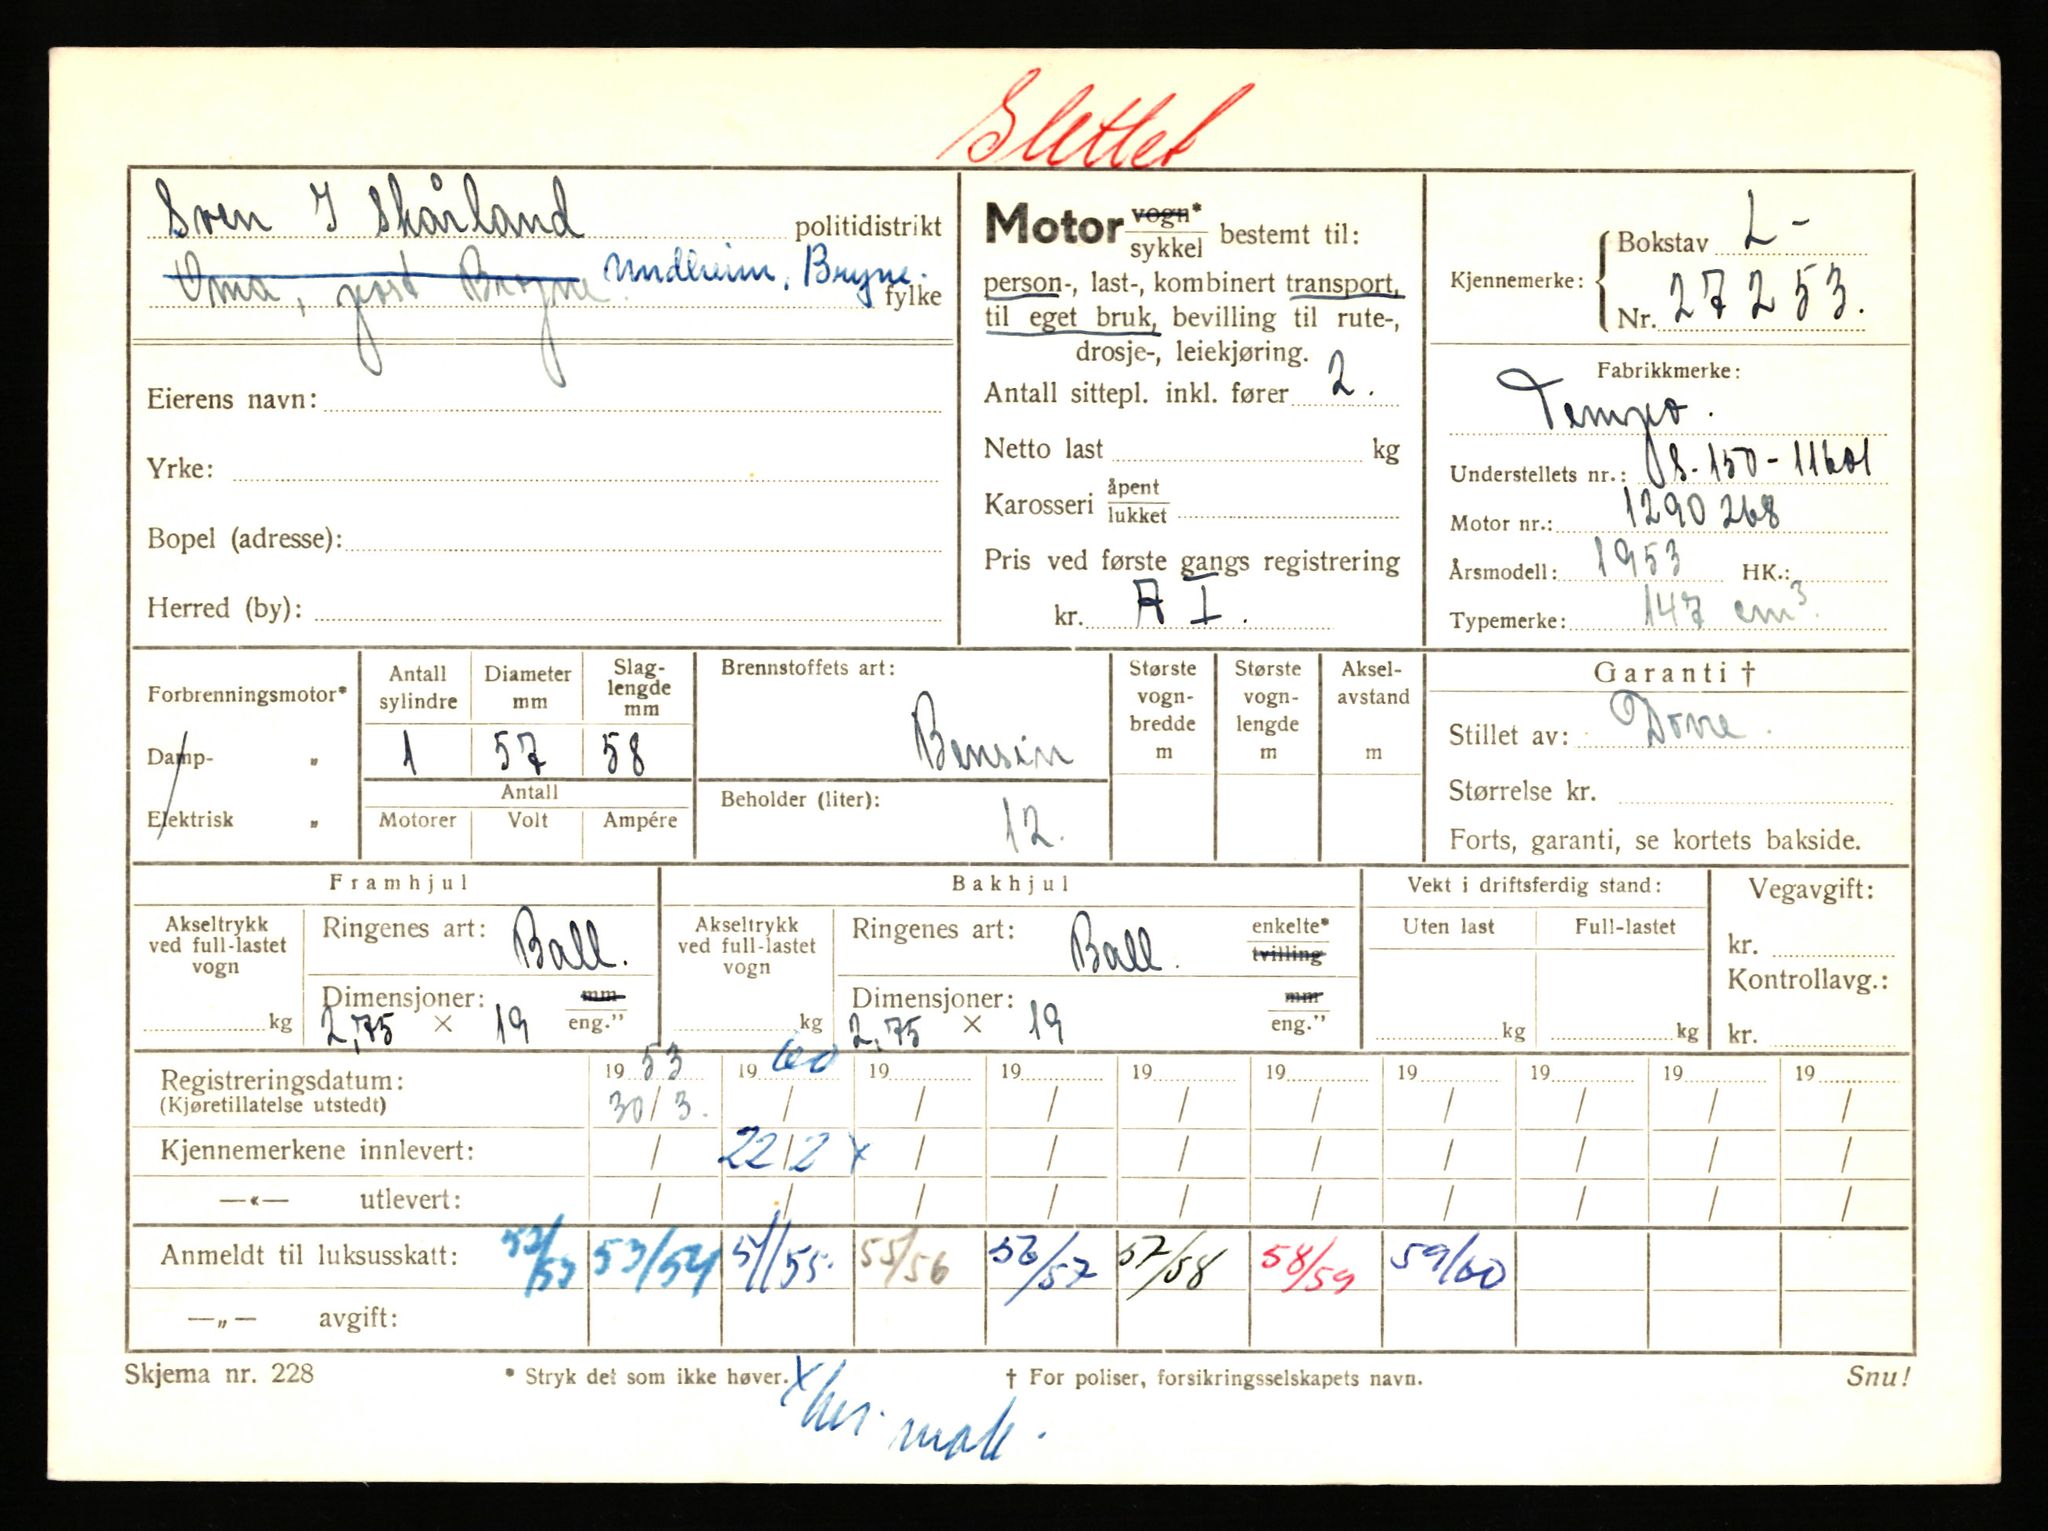 Slettet
Sven I Skårland politidistrikt
Oma, post Bryne. Undheim, Bryne. fylke
Eierens navn:
Yrke:
Bopel (adresse):
Herred (by):
Motor vogn* sykkel bestemt til:
person-, last-, kombinert transport,
til eget bruk, bevilling til rute-,
drosje-, leiekjøring.
Antall sittepl. inkl. fører 2.
Netto last kg
Karosseri åpent lukket
Pris ved første gangs registrering
kr. A I.
Kjennemerke: Bokstav L-
Nr. 27253.
Fabrikkmerke:
Tempo.
Understellets nr.: S-150-11601
Motor nr.: 1290268
Årsmodell: 1953 HK.:
Typemerke: 147 cm3.
Forbrenningsmotor*
Damp- "
Elektrisk "
Antall sylindre 1
Diameter mm 57
Slag-lengde mm 58
Antall
Motorer Volt Ampére
Brennstoffets art:
Bensin
Beholder (liter):
12.
Største vogn-bredde m
Største vogn-lengde m
Aksel-avstand m
Garanti †
Stillet av: Dovre.
Størrelse kr.
Forts, garanti, se kortets bakside.
Framhjul
Akseltrykk ved full-lastet vogn kg
Ringenes art: Ball.
Dimensjoner: mm
2,75 × 19 eng."
Bakhjul
Akseltrykk ved full-lastet vogn kg
Ringenes art: Ball. enkelte* tvilling
Dimensjoner: mm
2,75 × 19 eng."
Vekt i driftsferdig stand:
Uten last Full-lastet
kg kg
Vegavgift:
kr.
Kontrollavg.:
kr.
Registreringsdatum: 1953 1960 19 19 19 19 19 19 19 19
(Kjøretillatelse utstedt) 30/3. / / / / / / / / /
Kjennemerkene innlevert: / 22/2 x / / / / / / / /
—«— utlevert: / / / / / / / / / /
Anmeldt til luksusskatt: 52/53 53/54 54/55. 55/56 56/57 57/58 58/59 59/60
—„— avgift:
Skjema nr. 228 * Stryk det som ikke høver. † For poliser, forsikringsselskapets navn. Snu!
x